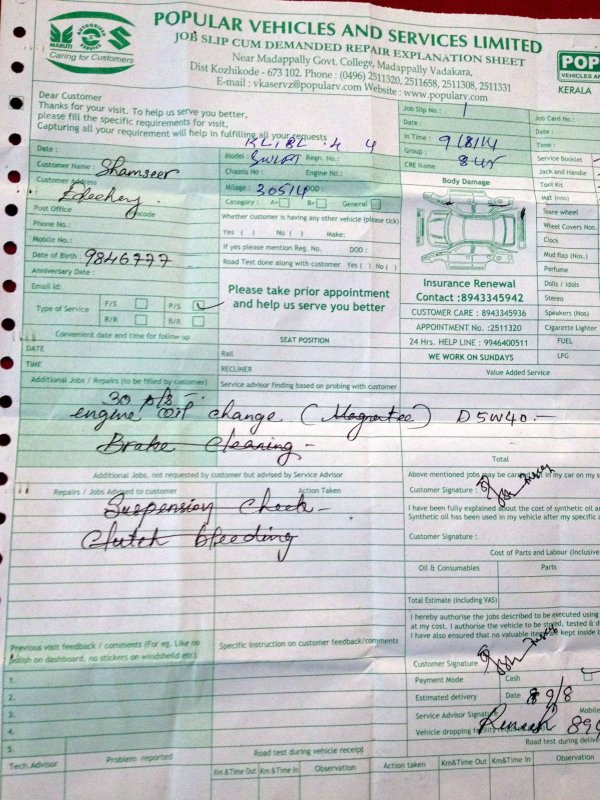 MARUTI
AUTHORISED SERVICE
Caring for Customers
POPULAR VEHICLES AND SERVICES LIMITED
JOB SLIP CUM DEMANDED REPAIR EXPLANATION SHEET
Near Madappally Govt. College, Madappally Vadakara,
Dist Kozhikode - 673 102. Phone : (0496) 2511320, 2511658, 2511308, 2511331
E-mail : vkaservz@popularv.com Website : www.popularv.com
POP
VEHICLES AND
KERALA
Dear Customer
Thanks for your visit. To help us serve you better,
please fill the specific requirements for visit,
Capturing all your requirement will help in fulfilling all your requests
Job Slip No.: 1
Date :
In Time : 9/8/14
Group :
CRE Name 845
Job Card No.:
Date :
Time :
Service Booklet
Jack and Handle
Tool Kit
Mat (nos)
Stare wheel
Wheel Covers Nos.
Clock
Mud flap (Nos.)
Perfume
Dolls / Idols
Stereo
Speakers (Nos)
Cigarette Lighter
FUEL
LPG
Date :
Customer Name : Shamseer
Customer Address
Post Office
Phone No.:
Mobile No.:
Date of Birth : 9846777
Anniversary Date :
Email Id:
Type of Service
F/S
P/S
R/R
B/R
Model : Swift Regn. No.:
Chassis No : Engine No.:
Milage : 30514 DOD :
Category : A+ B+ General
Whether customer is having any other vehicle (please tick)
Yes ( ) No ( ) Make:
If yes please mention Reg. No. DOD :
Road Test done along with customer Yes ( ) No ( )
Please take prior appointment
and help us serve you better
Body Damage
Insurance Renewal
Contact :8943345942
CUSTOMER CARE : 8943345936
APPOINTMENT No. :2511320
24 Hrs. HELP LINE : 9946400511
WE WORK ON SUNDAYS
Convenient date and time for follow up
DATE
TIME
SEAT POSITION
Rail
RECLINER
Value Added Service
Additional Jobs / Repairs (to be filled by customer)
Service advisor finding based on probing with customer
30 p/s -
engine oil change (Magnatec) D5W40 -
Brake cleaning -
Total
Additional Jobs, not requested by customer but advised by Service Advisor
Repairs / Jobs Advised to customer
Action Taken
Suspension Check -
Clutch bleeding
Above mentioned jobs may be carried in my car on my s
Customer Signature :
I have been fully explained about the cost of synthetic oil an
Synthetic oil has been used in my vehicle after my specific a
Customer Signature :
Cost of Parts and Labour (Inclusive
Oil & Consumables Parts
Total Estimate (Including VAS)
I hereby authorise the jobs described to be executed using
at my cost. I authorise the vehicle to be stored, tested & d
I have also ensured that no valuable items is kept inside t
Customer Signature
Payment Mode Cash
Estimated delivery Date 9/8
Service Advisor Signature Mobile
Vehicle dropping facility required
Previous visit feedback / comments (For eg. Like no
polish on dashboard, no stickers on windshield etc)
Specific Instruction on customer feedback/comments
1.
2.
3.
4.
5.
Tech.Advisor
Problem reported
Road test during vehicle receipt
Km&Time Out Km&Time In Observation
Action taken
Road test during deliver
Km&Time Out Km&Time In Observation